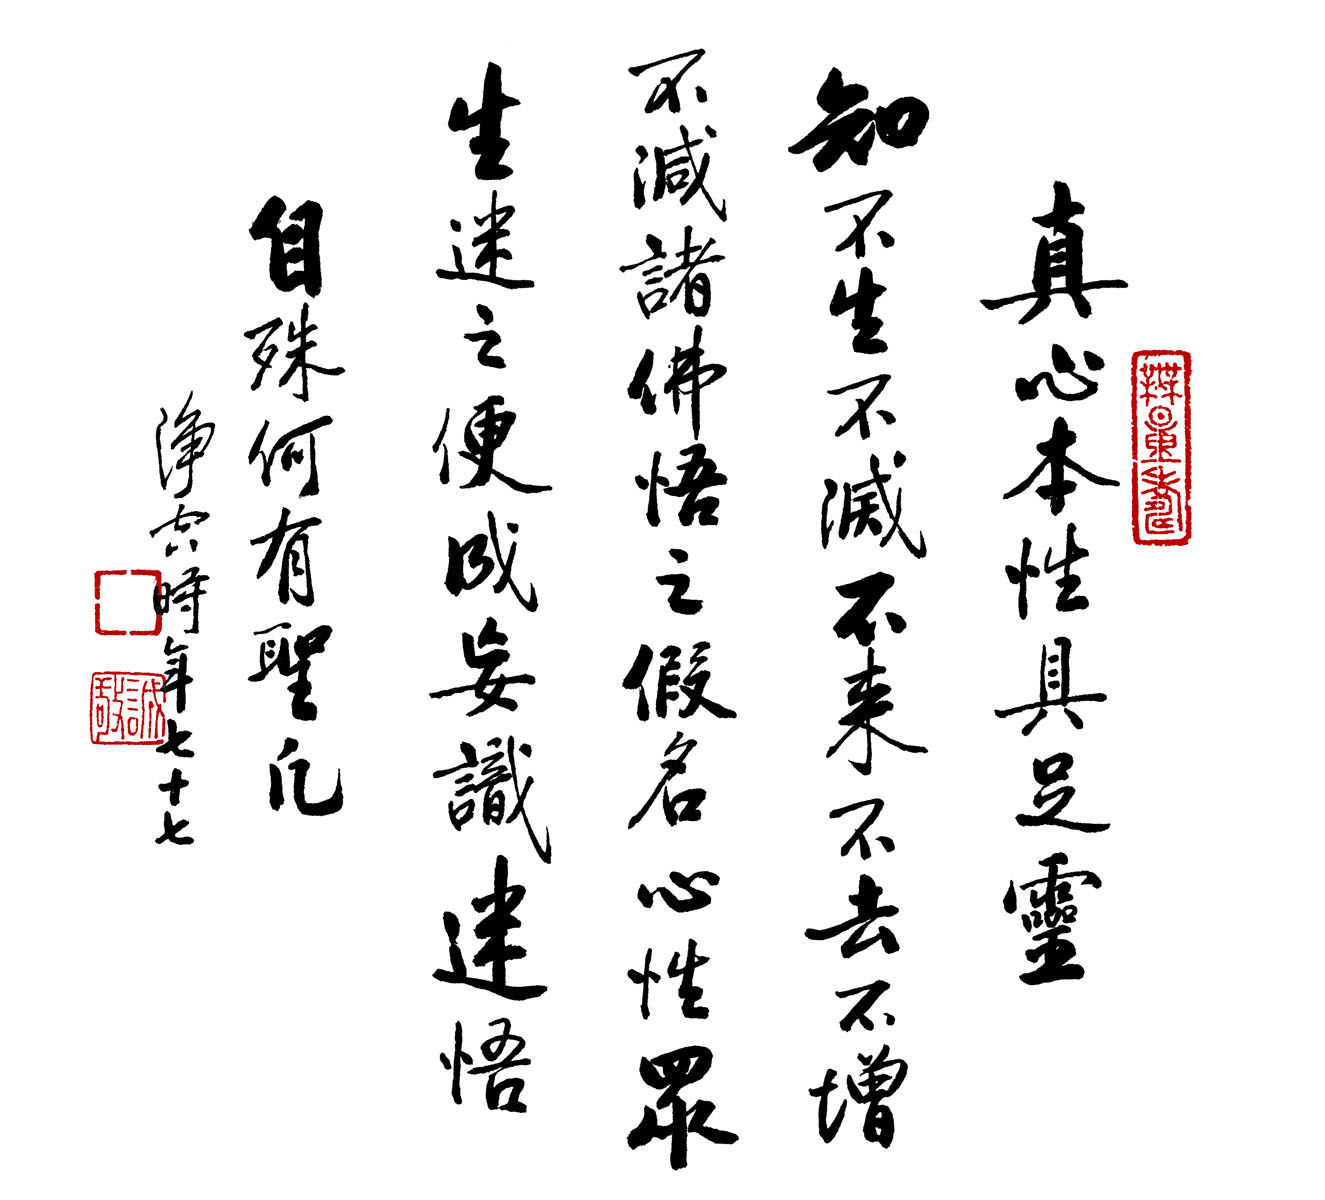 真心本性具足靈
知不生不滅不来不去不增
不減諸佛悟之假名心性眾
生迷之便成妄識迷悟
自殊何有聖凡
淨空時年七十七
無量壽